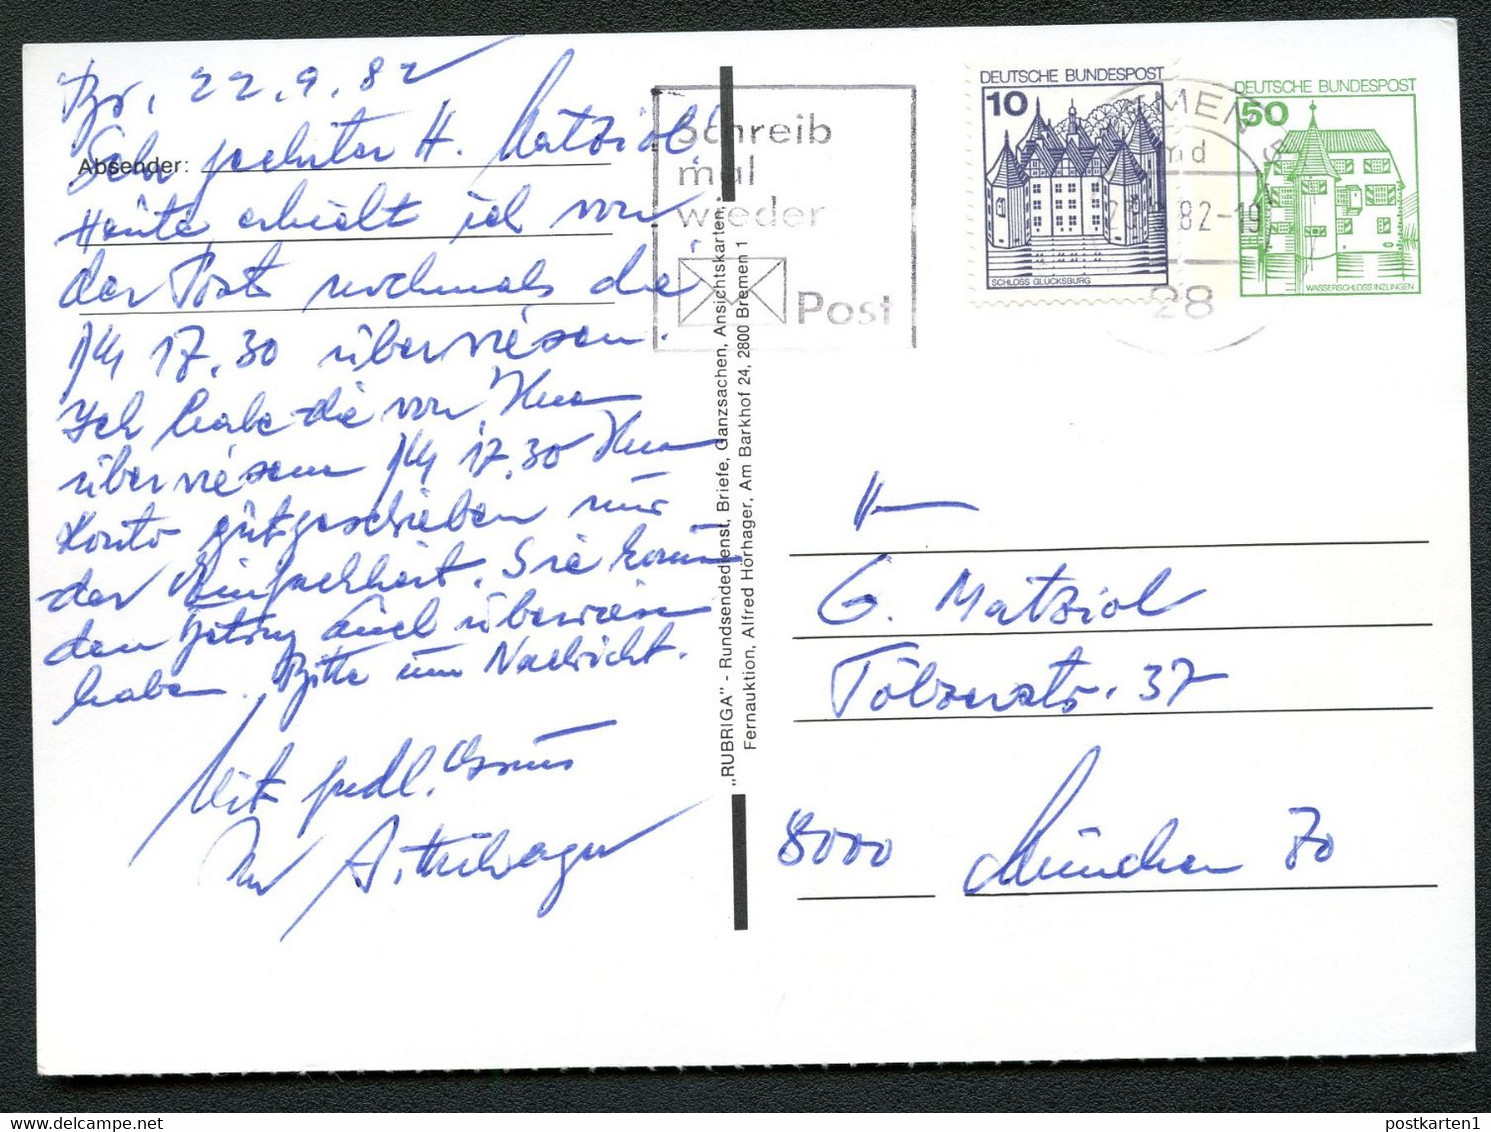 Br., 22.9.82
Absender:
Sehr geehrter H. Matziol!
Heute erhielt ich von
der Post nochmals die
DM 17.30 überwiesen.
Ich habe die von Ihnen
überwiesenen DM 17,30 Ihrem
Konto gutgeschrieben nur
der Einfachheit. Sie
den Betrag auch überwiesen
haben. Bitte um Nachricht.
Mit frdl. Gruss
Ihr A. Hörhager
Schreib
mal
wieder
Post
DEUTSCHE BUNDESPOST
10
SCHLOSS GLÜCKSBURG
DEUTSCHE BUNDESPOST
50
WASSERSCHLOSS INZLINGEN
82-19
28
„RUBRIGA" - Rundsendedienst, Briefe, Ganzsachen, Ansichtskarten,
Fernauktion, Alfred Hörhager, Am Barkhof 24, 2800 Bremen 1
H
G. Matziol
Tölzerstr. 37
8000 München 70
postkarten1